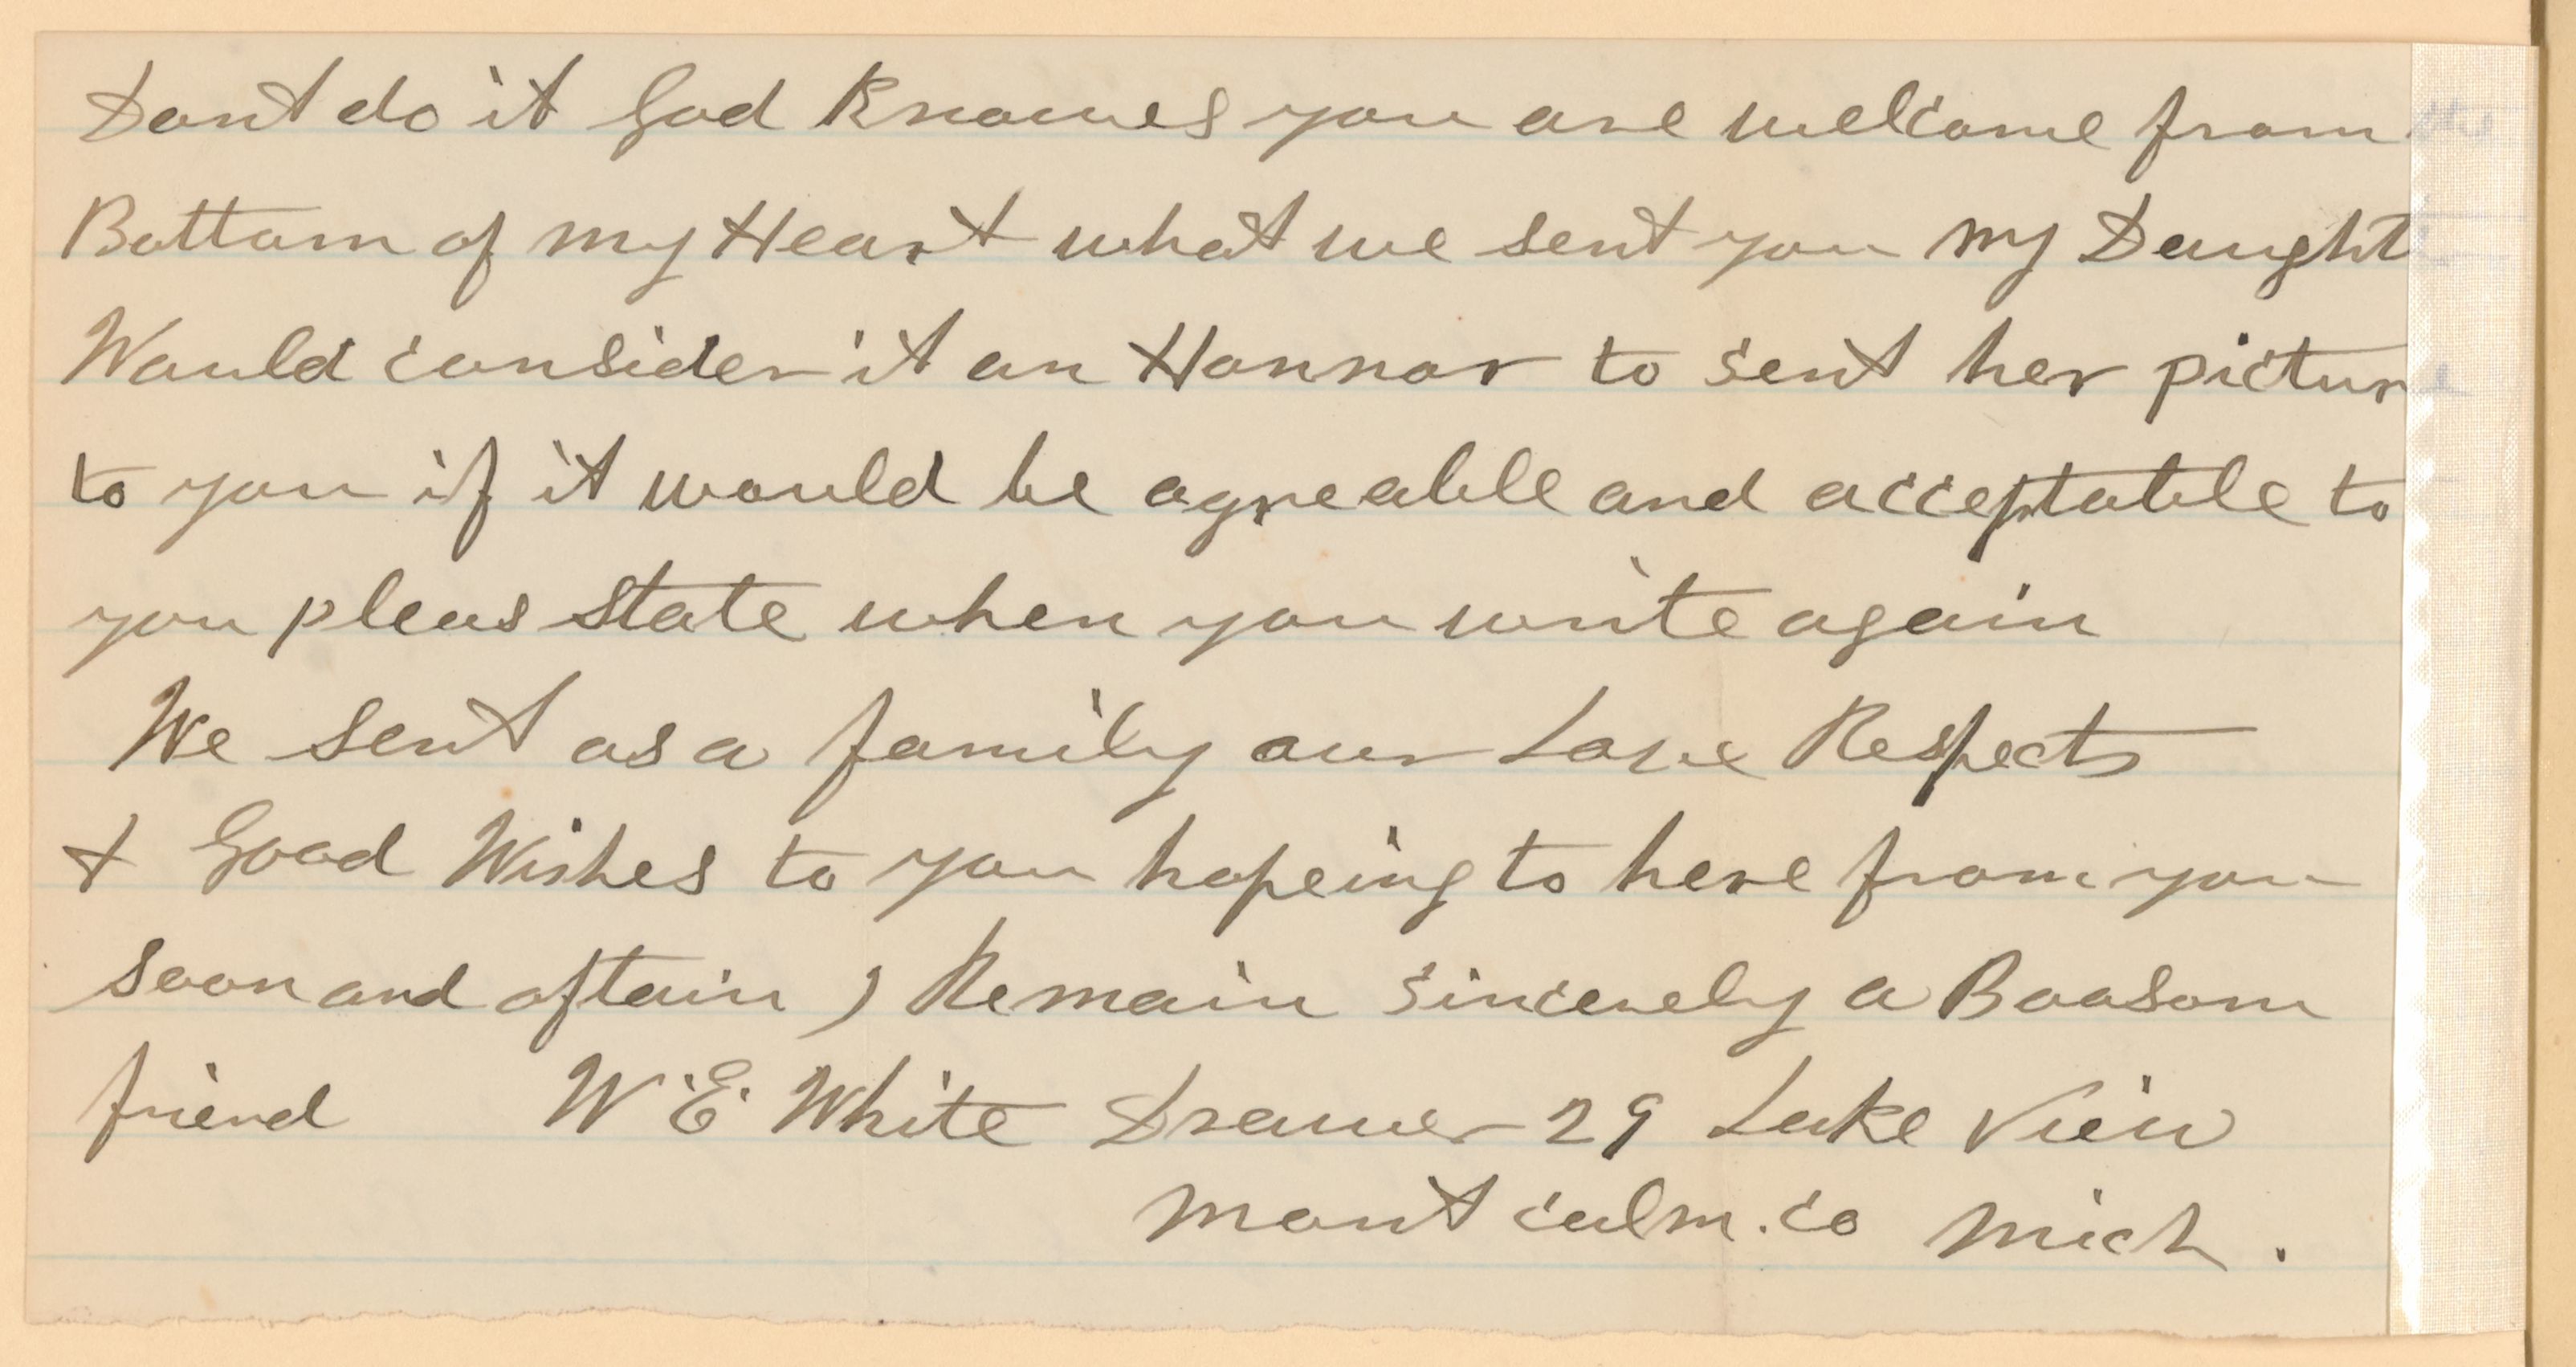 Dont do it God Knowes you are welcome from the
Bottom of my Heart what we sent you my Daught
Would consider it an Honnor to sent her picture
to you if it would be agreable and acceptable to
you pleas state when you write again
We sent as a family our Love Respects
& Good Wishes to you hopeing to here from you
soon and oftain I Remain sincerely a Boosom
friend W E White Drawer 29 Lake View
Mont calm. co Mich.